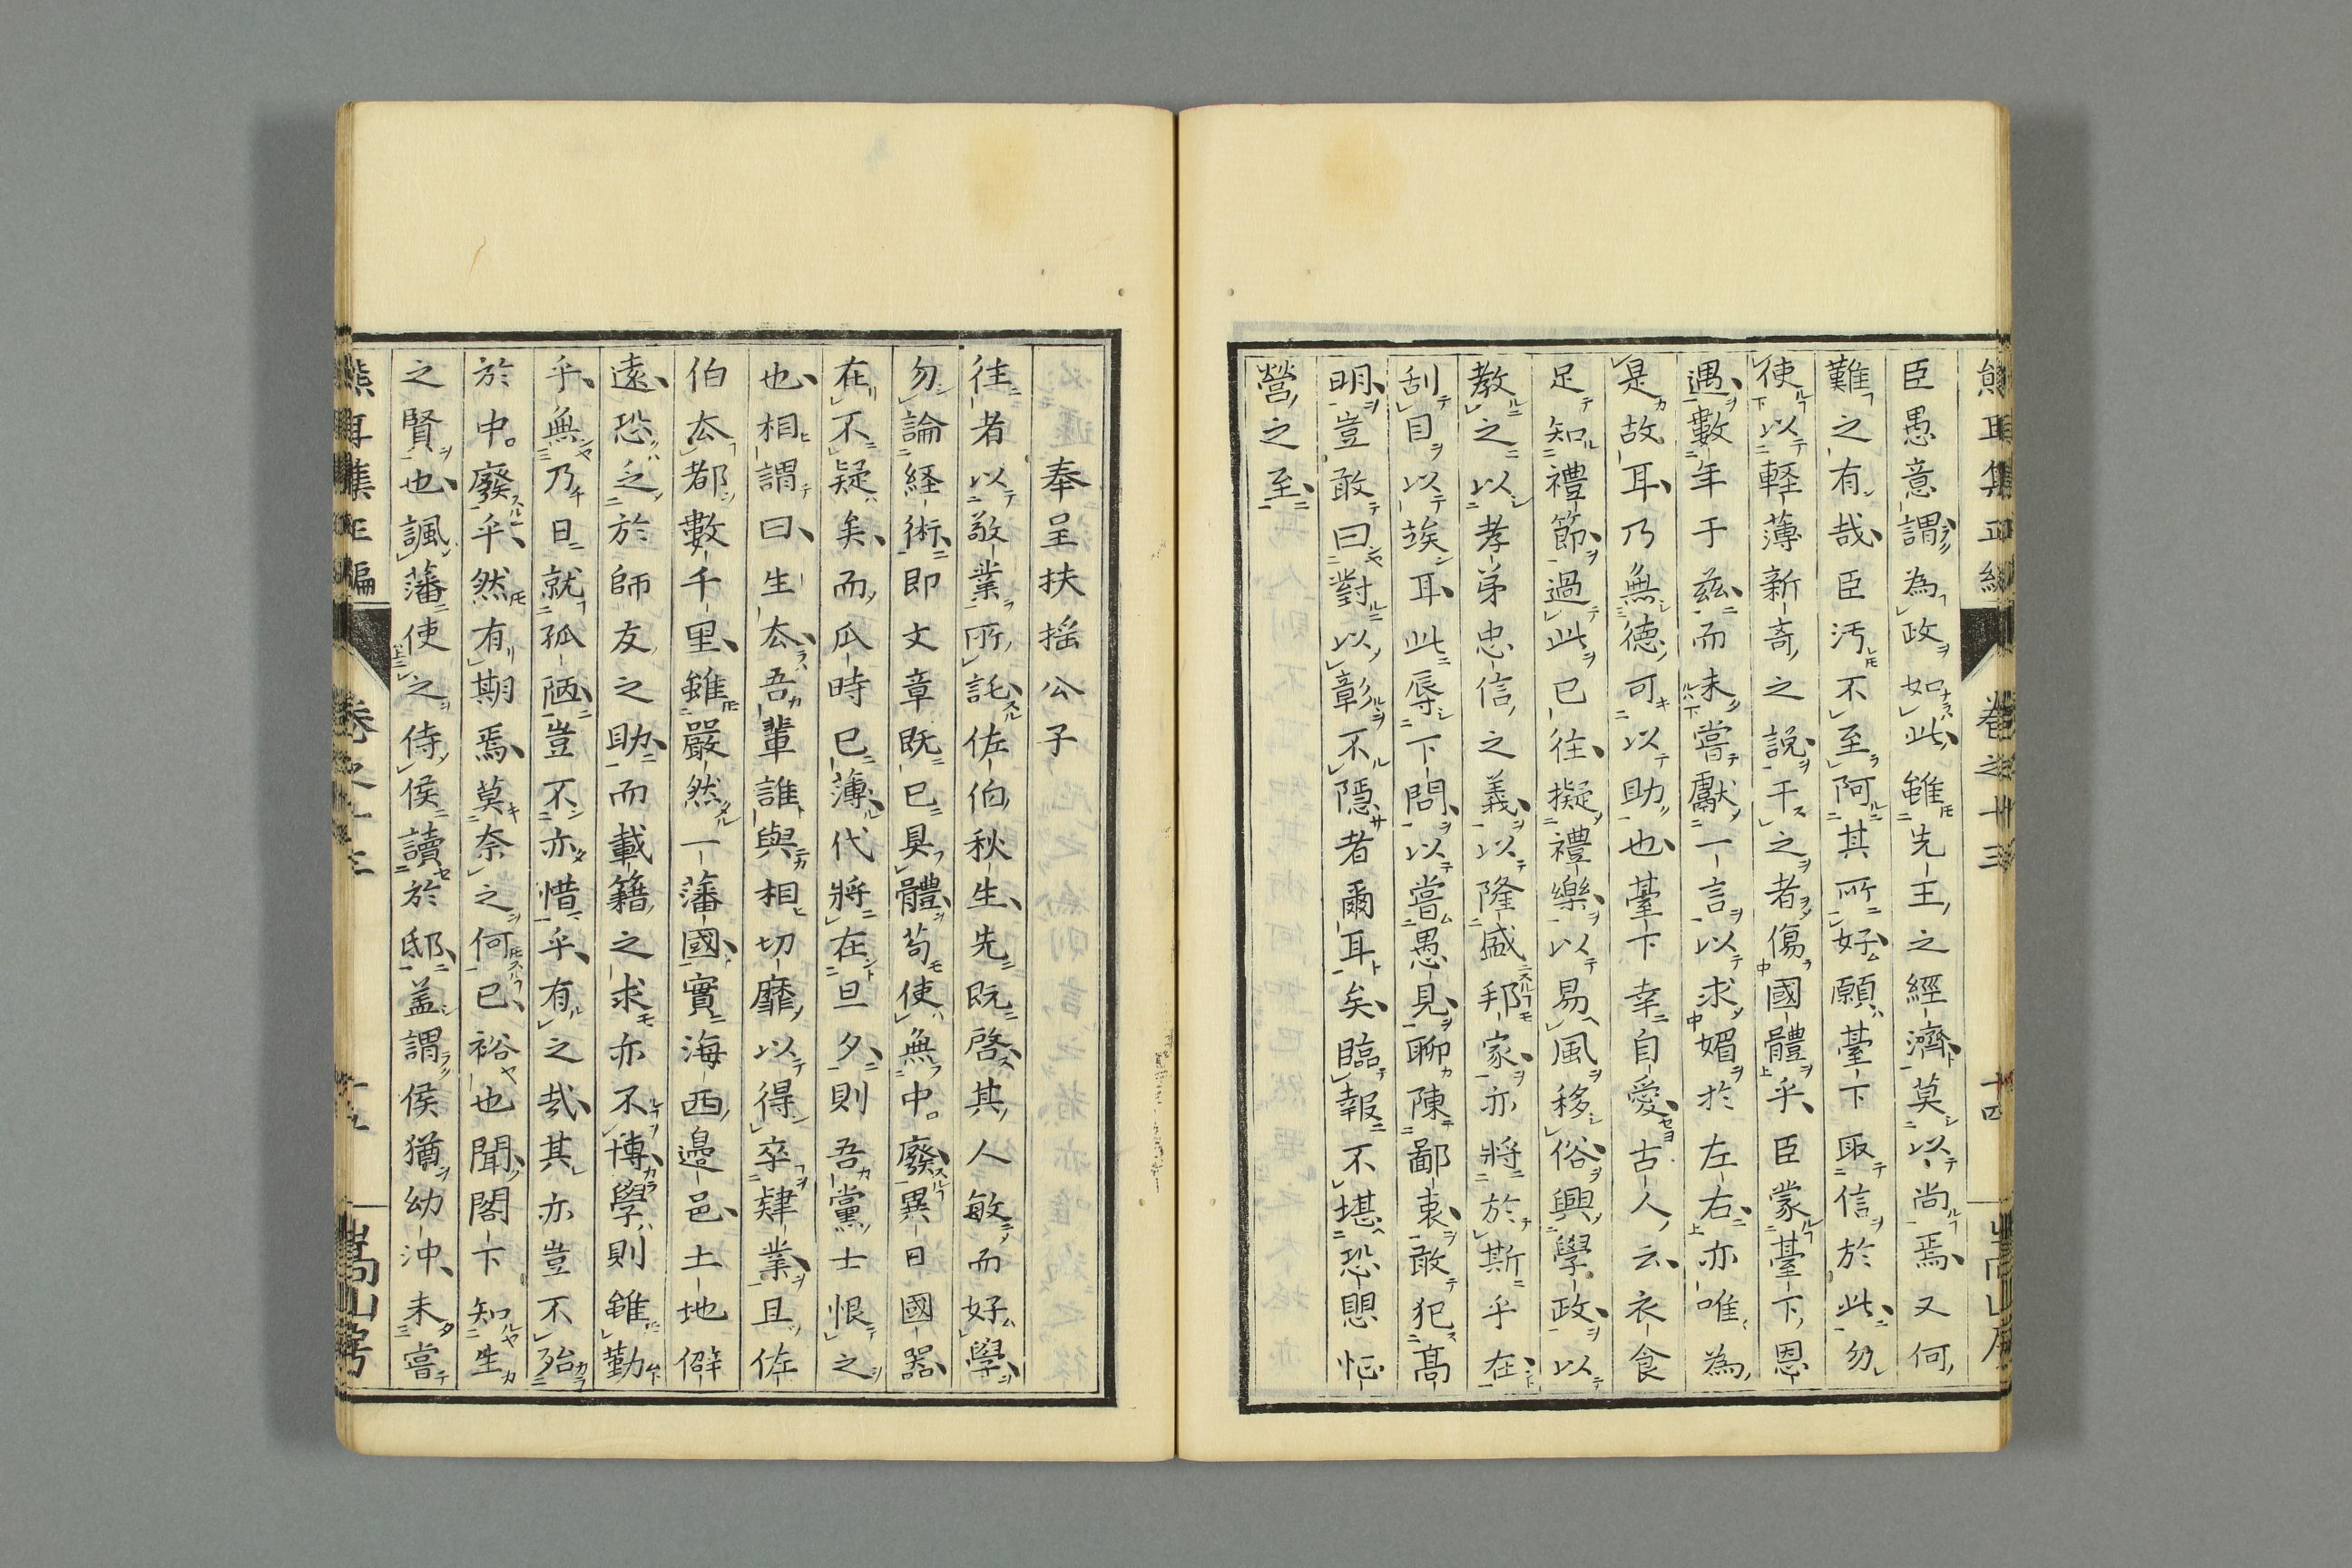 臣愚意謂為政如此雖先王之經濟莫以尚焉又何
難之有哉臣汚不至阿其所好願臺下取信於此勿
使以輕薄新奇之說干之者傷國體乎臣蒙臺下恩
遇數年于茲而未嘗獻一言以求媚於左右亦唯為
是故耳乃無德可以助也臺下幸自愛古人云衣食
足知禮節過此已往擬禮樂以易風移俗興學政以
教之以孝弟忠信之義以隆盛邦家亦將於斯乎在
刮目以竢耳此辱下問以嘗愚見聊陳鄙衷敢犯高
明豈敢曰對以彰不隱者爾耳矣臨報不堪恐思怔
營之至
奉呈扶搖公子
往者以敬業所託佐伯秋生先既啓其人敏而好學
勿論経術即文章既已具體苟使無中廢異日國器
在不疑矣而瓜時已薄代將在旦夕則吾黨士恨之
也相謂曰生厺吾輩誰與相切靡以得卒肄業且佐
伯厺都數千里雖嚴然一藩國實海西邊邑土地僻
遠恐乏於師友之助而載籍之求亦不博學則雖勤
乎無乃日就孤陋豈不亦惜乎有之哉其亦豈不殆
於中廢乎然有期焉莫奈之何已裕也聞閤下知生
之賢也諷藩使之侍侯讀於邸蓋謂侯猶幼沖未嘗
卷之十三